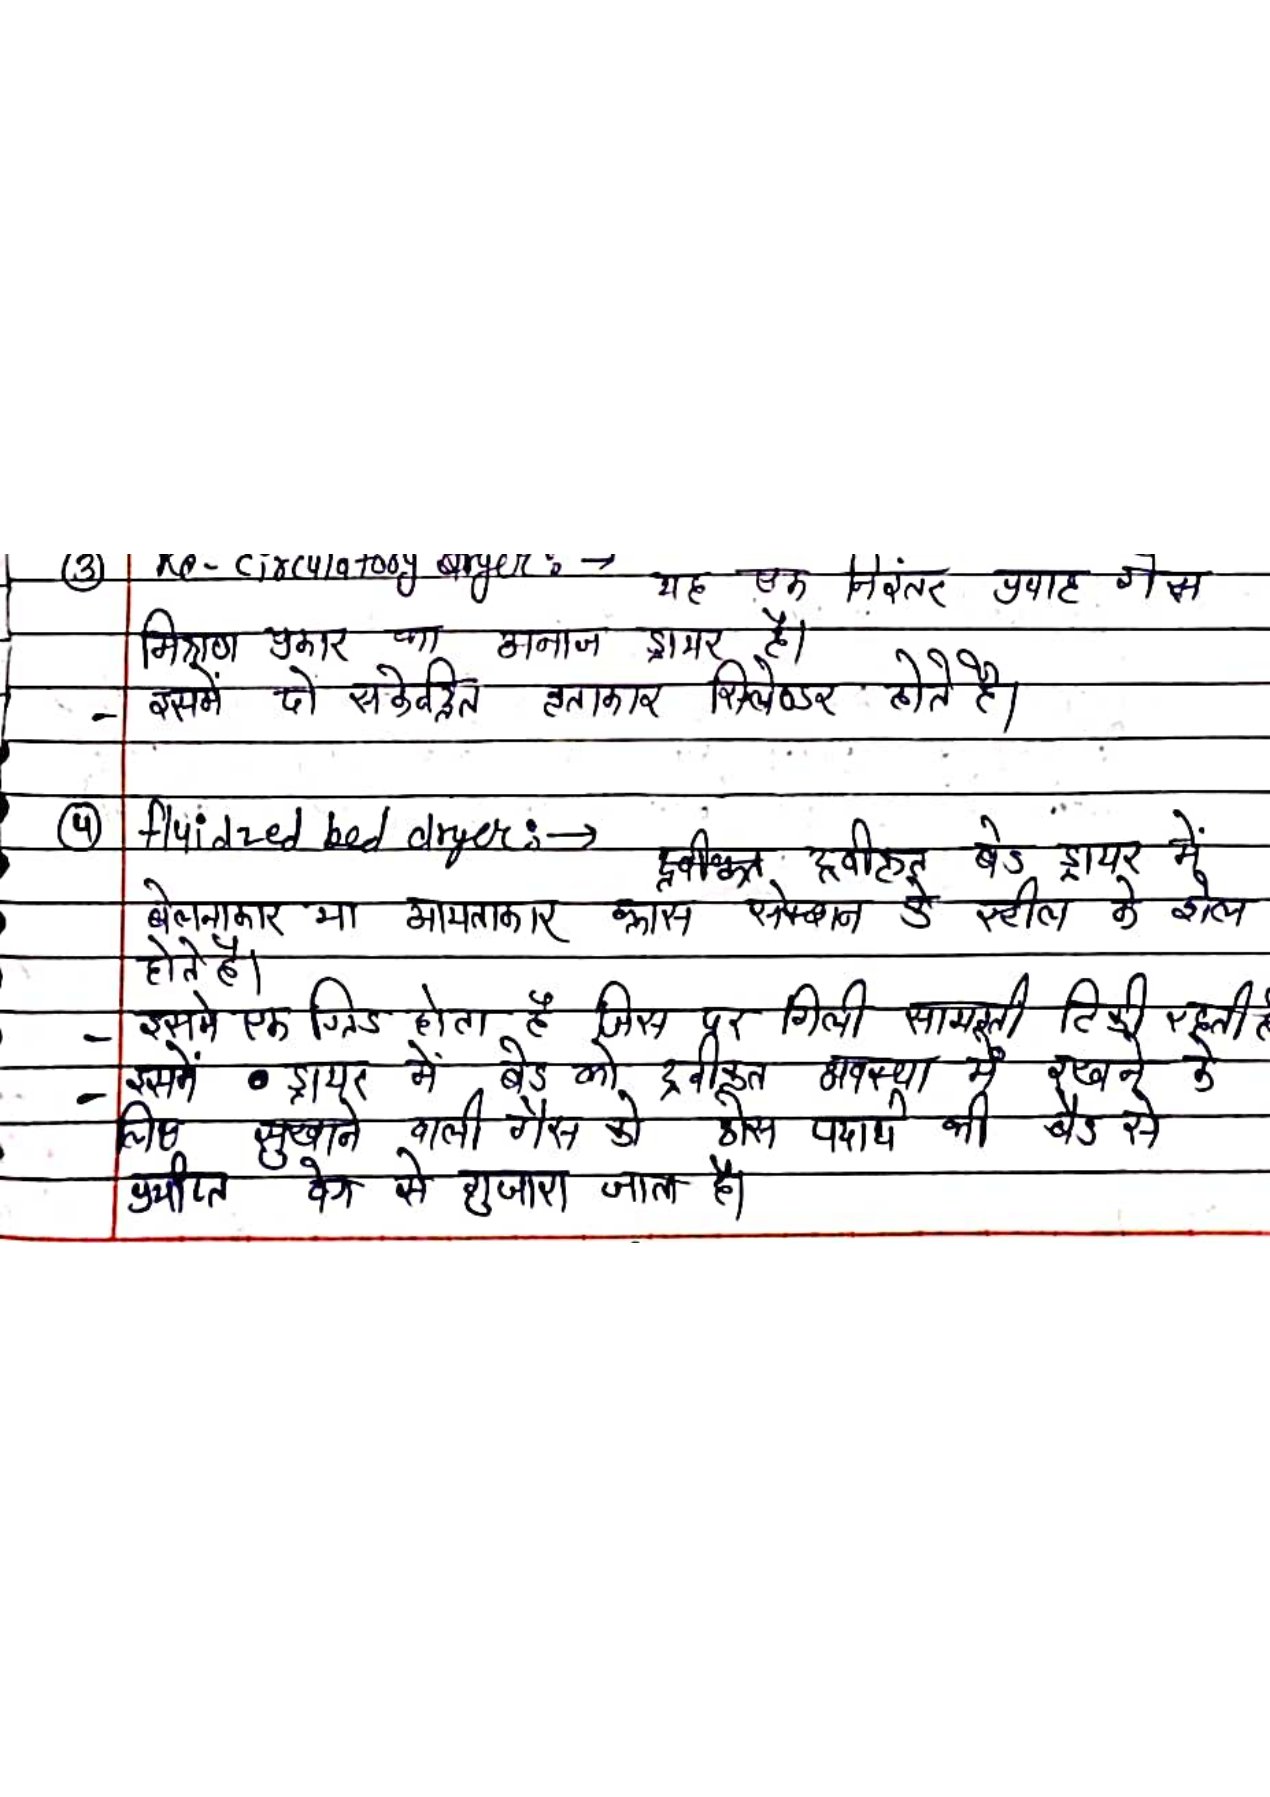 ③ Re-circulatory dryer :→ यह एक निरंतर प्रवाह गैस
मिश्रण प्रकार का अनाज ड्रायर है।
- इसमें दो सकेन्द्रित वृताकार सिलेण्डर होते है।
④ fluidized bed dryer :→ द्रवीकृत द्रवीकृत बेड ड्रायर में
बेलनाकार या आयताकार क्रास सेक्शन के स्टील के शेल
होते है।
- इसमे एक ग्रिड होता है जिस पर गिली सामग्री टिकी रहती है
- इसमें ड्रायर में बेड को द्रवीकृत अवस्था में रखने के
लिए सुखाने वाली गैस को ठोस पदार्थ की बैड से
प्रर्याप्त वेग से गुजारा जाता है।